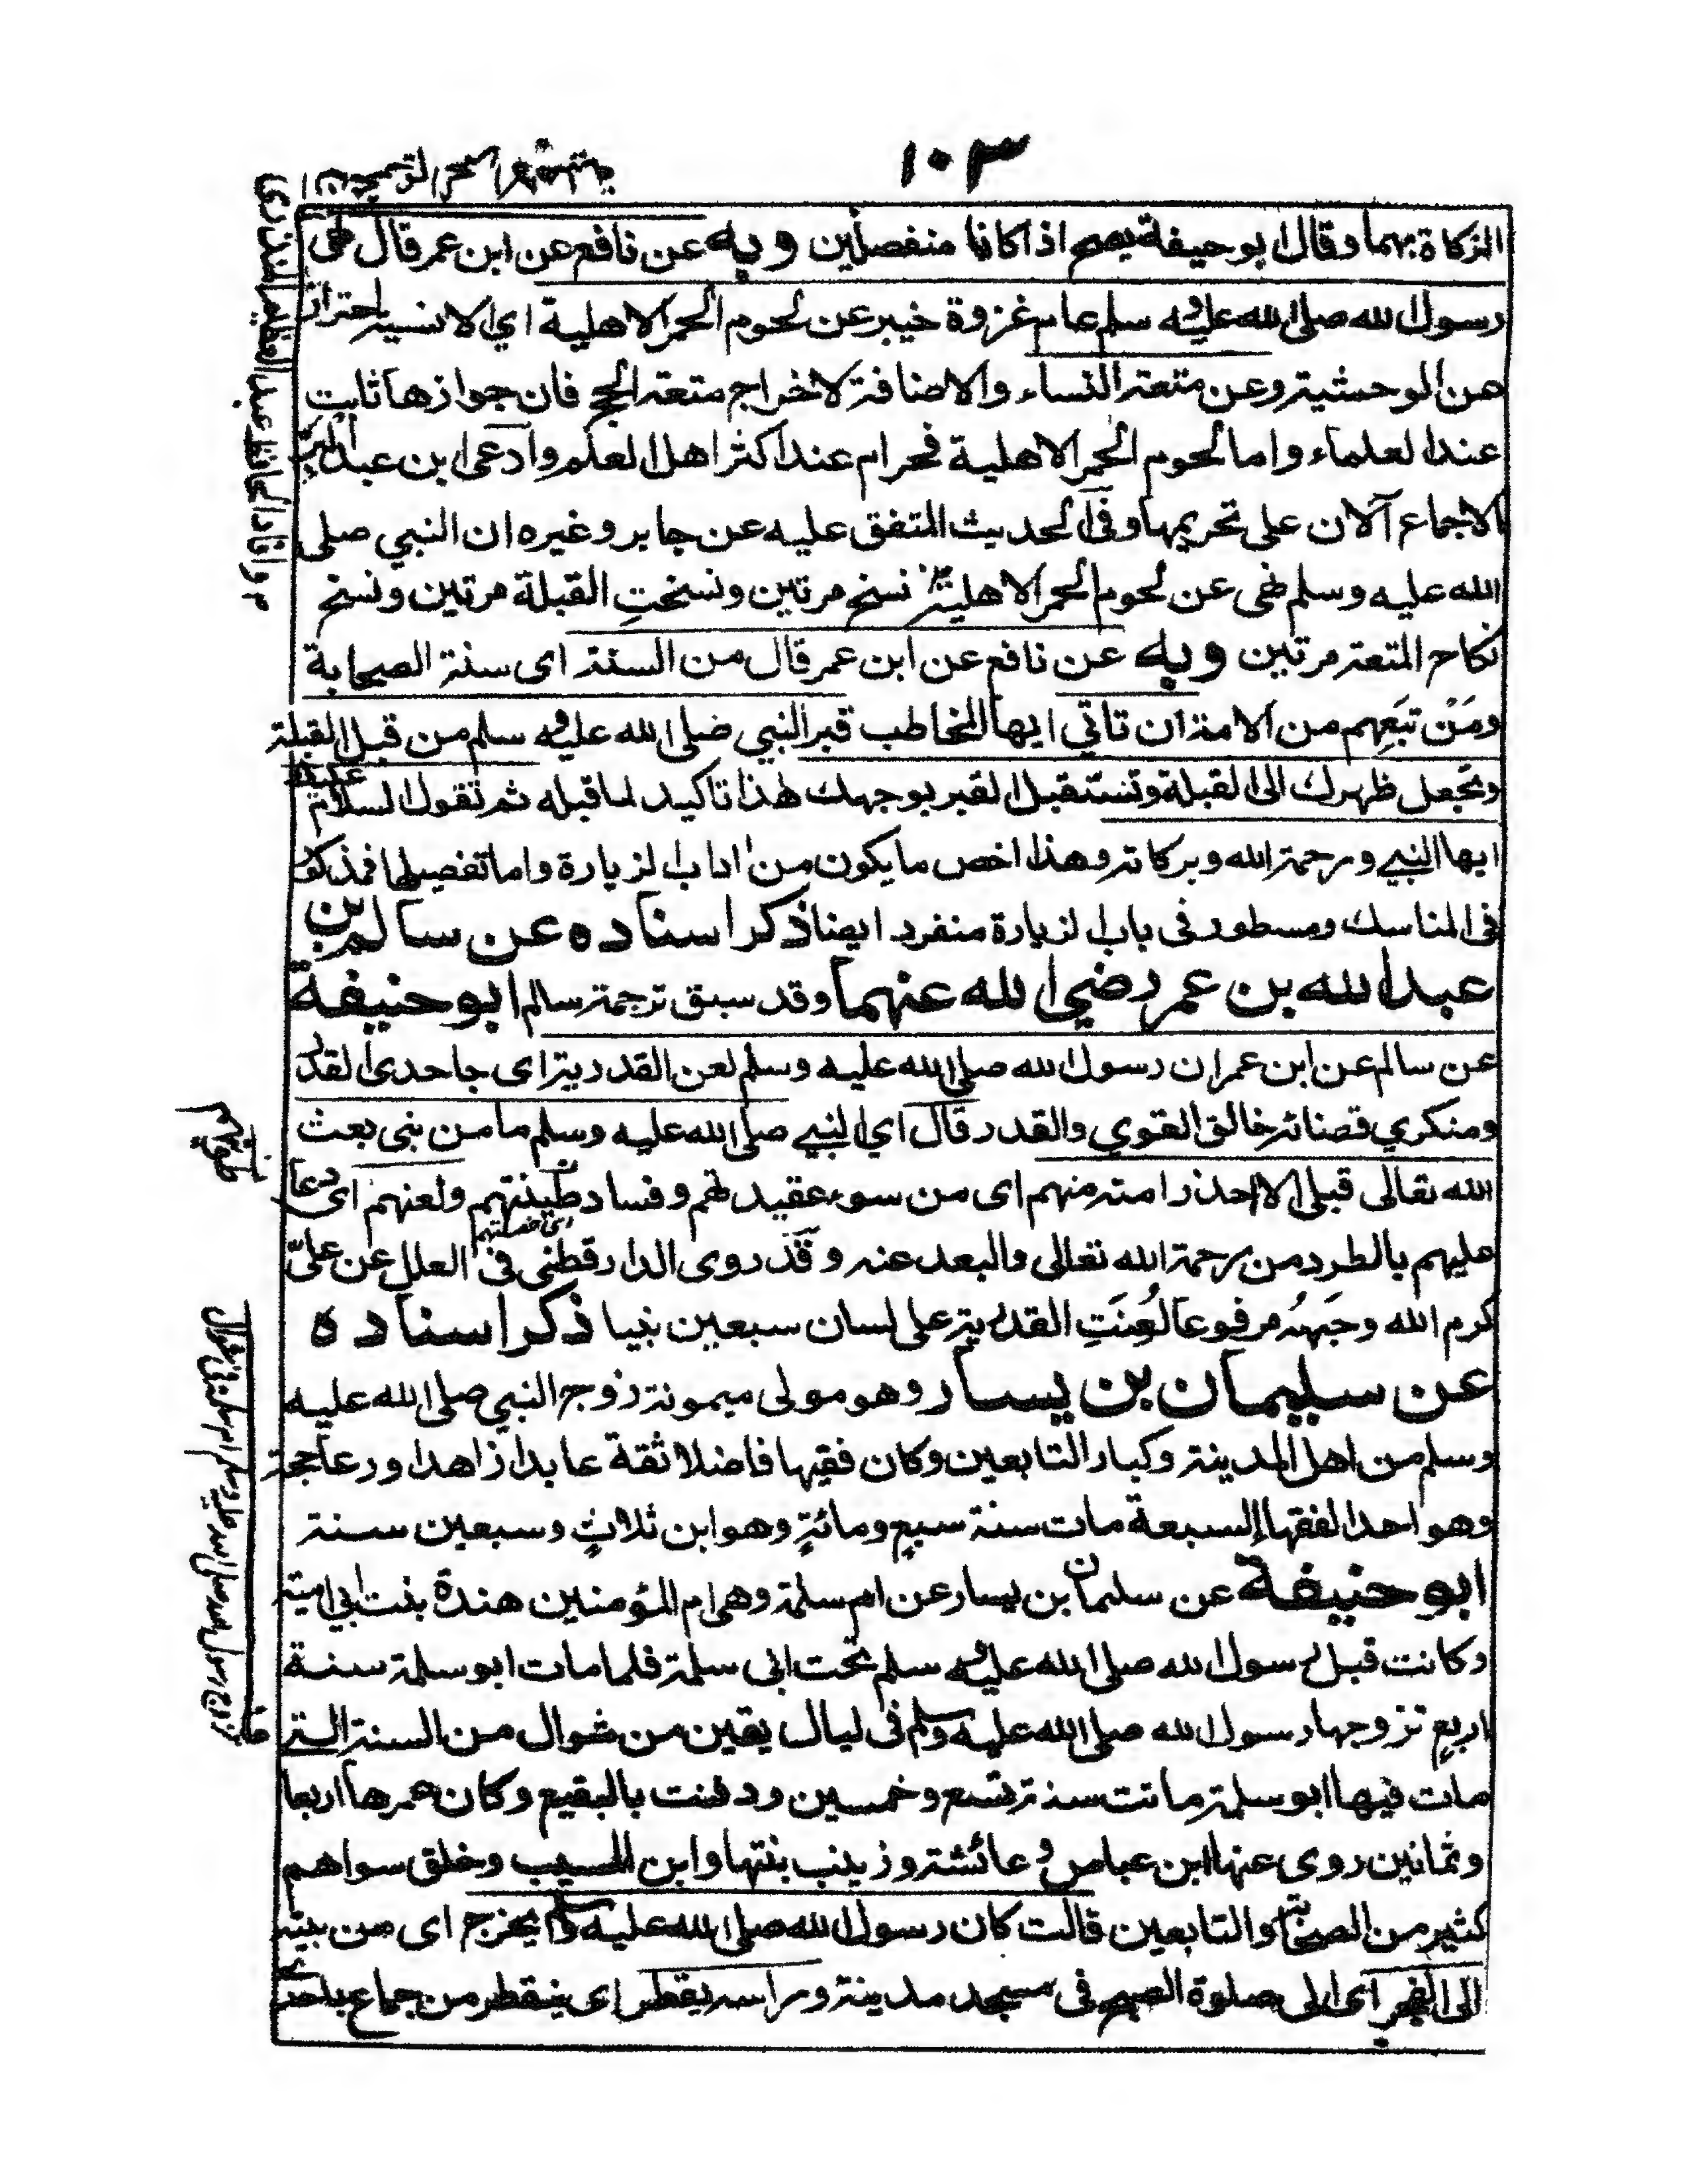 ١٠٣
الزكاة بهما وقال ابو حنيفة يصح اذا كانا منفصلين وبه عن نافع عن ابن عمر قال نهى
رسول الله صلى الله عليه وسلم عام غزوة خيبر عن لحوم الحمر الاهلية اي الانسية احتراز
من الوحشية وعن متعة النساء والاضافة لاخراج متعة الحج فان جوازها ثابت
عند العلماء واما لحوم الحمر الاهلية فحرام عند اكثر اهل العلم وادعى ابن عبد البر
الاجماع الآن على تحريمها وفي الحديث المتفق عليه عن جابر وغيره ان النبي صلى
الله عليه وسلم نهى عن لحوم الحمر الاهلية نسخ مرتين ونسخت القبلة مرتين ونسخ
نكاح المتعة مرتين وبه عن نافع عن ابن عمر قال من السنة اى سنة الصحابة
ومَنْ تبَعِهم من الامة ان تاتي ايها المخاطب قبر النبي صلى الله عليه وسلم من قبل القبلة
وتجعل ظهرك الى القبلة وتستقبل القبر بوجهك هذا تاكيد لما قبله ثم تقول السلام عليك
ايها النبي ورحمة الله وبركاته وهذا اخص ما يكون من اداب الزيارة واما تفصيلها فمذكور
فى المناسك ومسطور فى باب الزيارة منفرد ايضا ذكر اسناده عن سالم بن
عبد الله بن عمر رضي الله عنهما وقد سبق ترجمة سالم ابو حنيفة
عن سالم عن ابن عمر ان رسول الله صلى الله عليه وسلم لعن القدرية اى جاحدى القدر
ومنكري قضائه خالق القوي والقدر قال اي النبي صلى الله عليه وسلم ما من نبى بعث
الله تعالى قبلى الا حذر امته منهم اى من سوء عقيدتهم وفساد طينتهم ولعنهم اى دعا
عليهم بالطرد من رحمة الله تعالى والبعد عنه وقَدْ روى الدارقطنى فى العلل عن علىّ
كرم الله وجَهَهُ مرفوعا لُعِنَتِ القدرية على لسان سبعين نبيا ذكر اسناده
عن سليمان بن يسار وهو مولى ميمونة زوج النبي صلى الله عليه
وسلم من اهل المدينة وكبار التابعين وكان فقيها فاضلا ثقة عابدا زاهدا ورعا حجة
وهو احد الفقهاء السبعة مات سنة سبعٍ ومائةٍ وهو ابن ثلاثٍ وسبعين سنة
ابو حنيفة عن سليمان بن يسار عن ام سلمة وهى ام المؤمنين هندة بنت ابي امية
وكانت قبل رسول الله صلى الله عليه وسلم تحت ابى سلمة فلما مات ابو سلمة سنة
اربعٍ تزوجها رسول الله صلى الله عليه وسلم فى ليال بقين من شوال من السنة التى
مات فيها ابو سلمة ماتت سنة تسع وخمسين ودفنت بالبقيع وكان عمرها اربعا
وثمانين روى عنها ابن عباس وعائشة وزينب بنتها وابن المسيب وخلق سواهم
كثير من الصحابة والتابعين قالت كان رسول الله صلى الله عليه وسلم يخرج اى من بيته
الى الفجر اى الى صلوة الصبح فى مسجد مدينة وراسه يقطر اى ينقطر من جماع